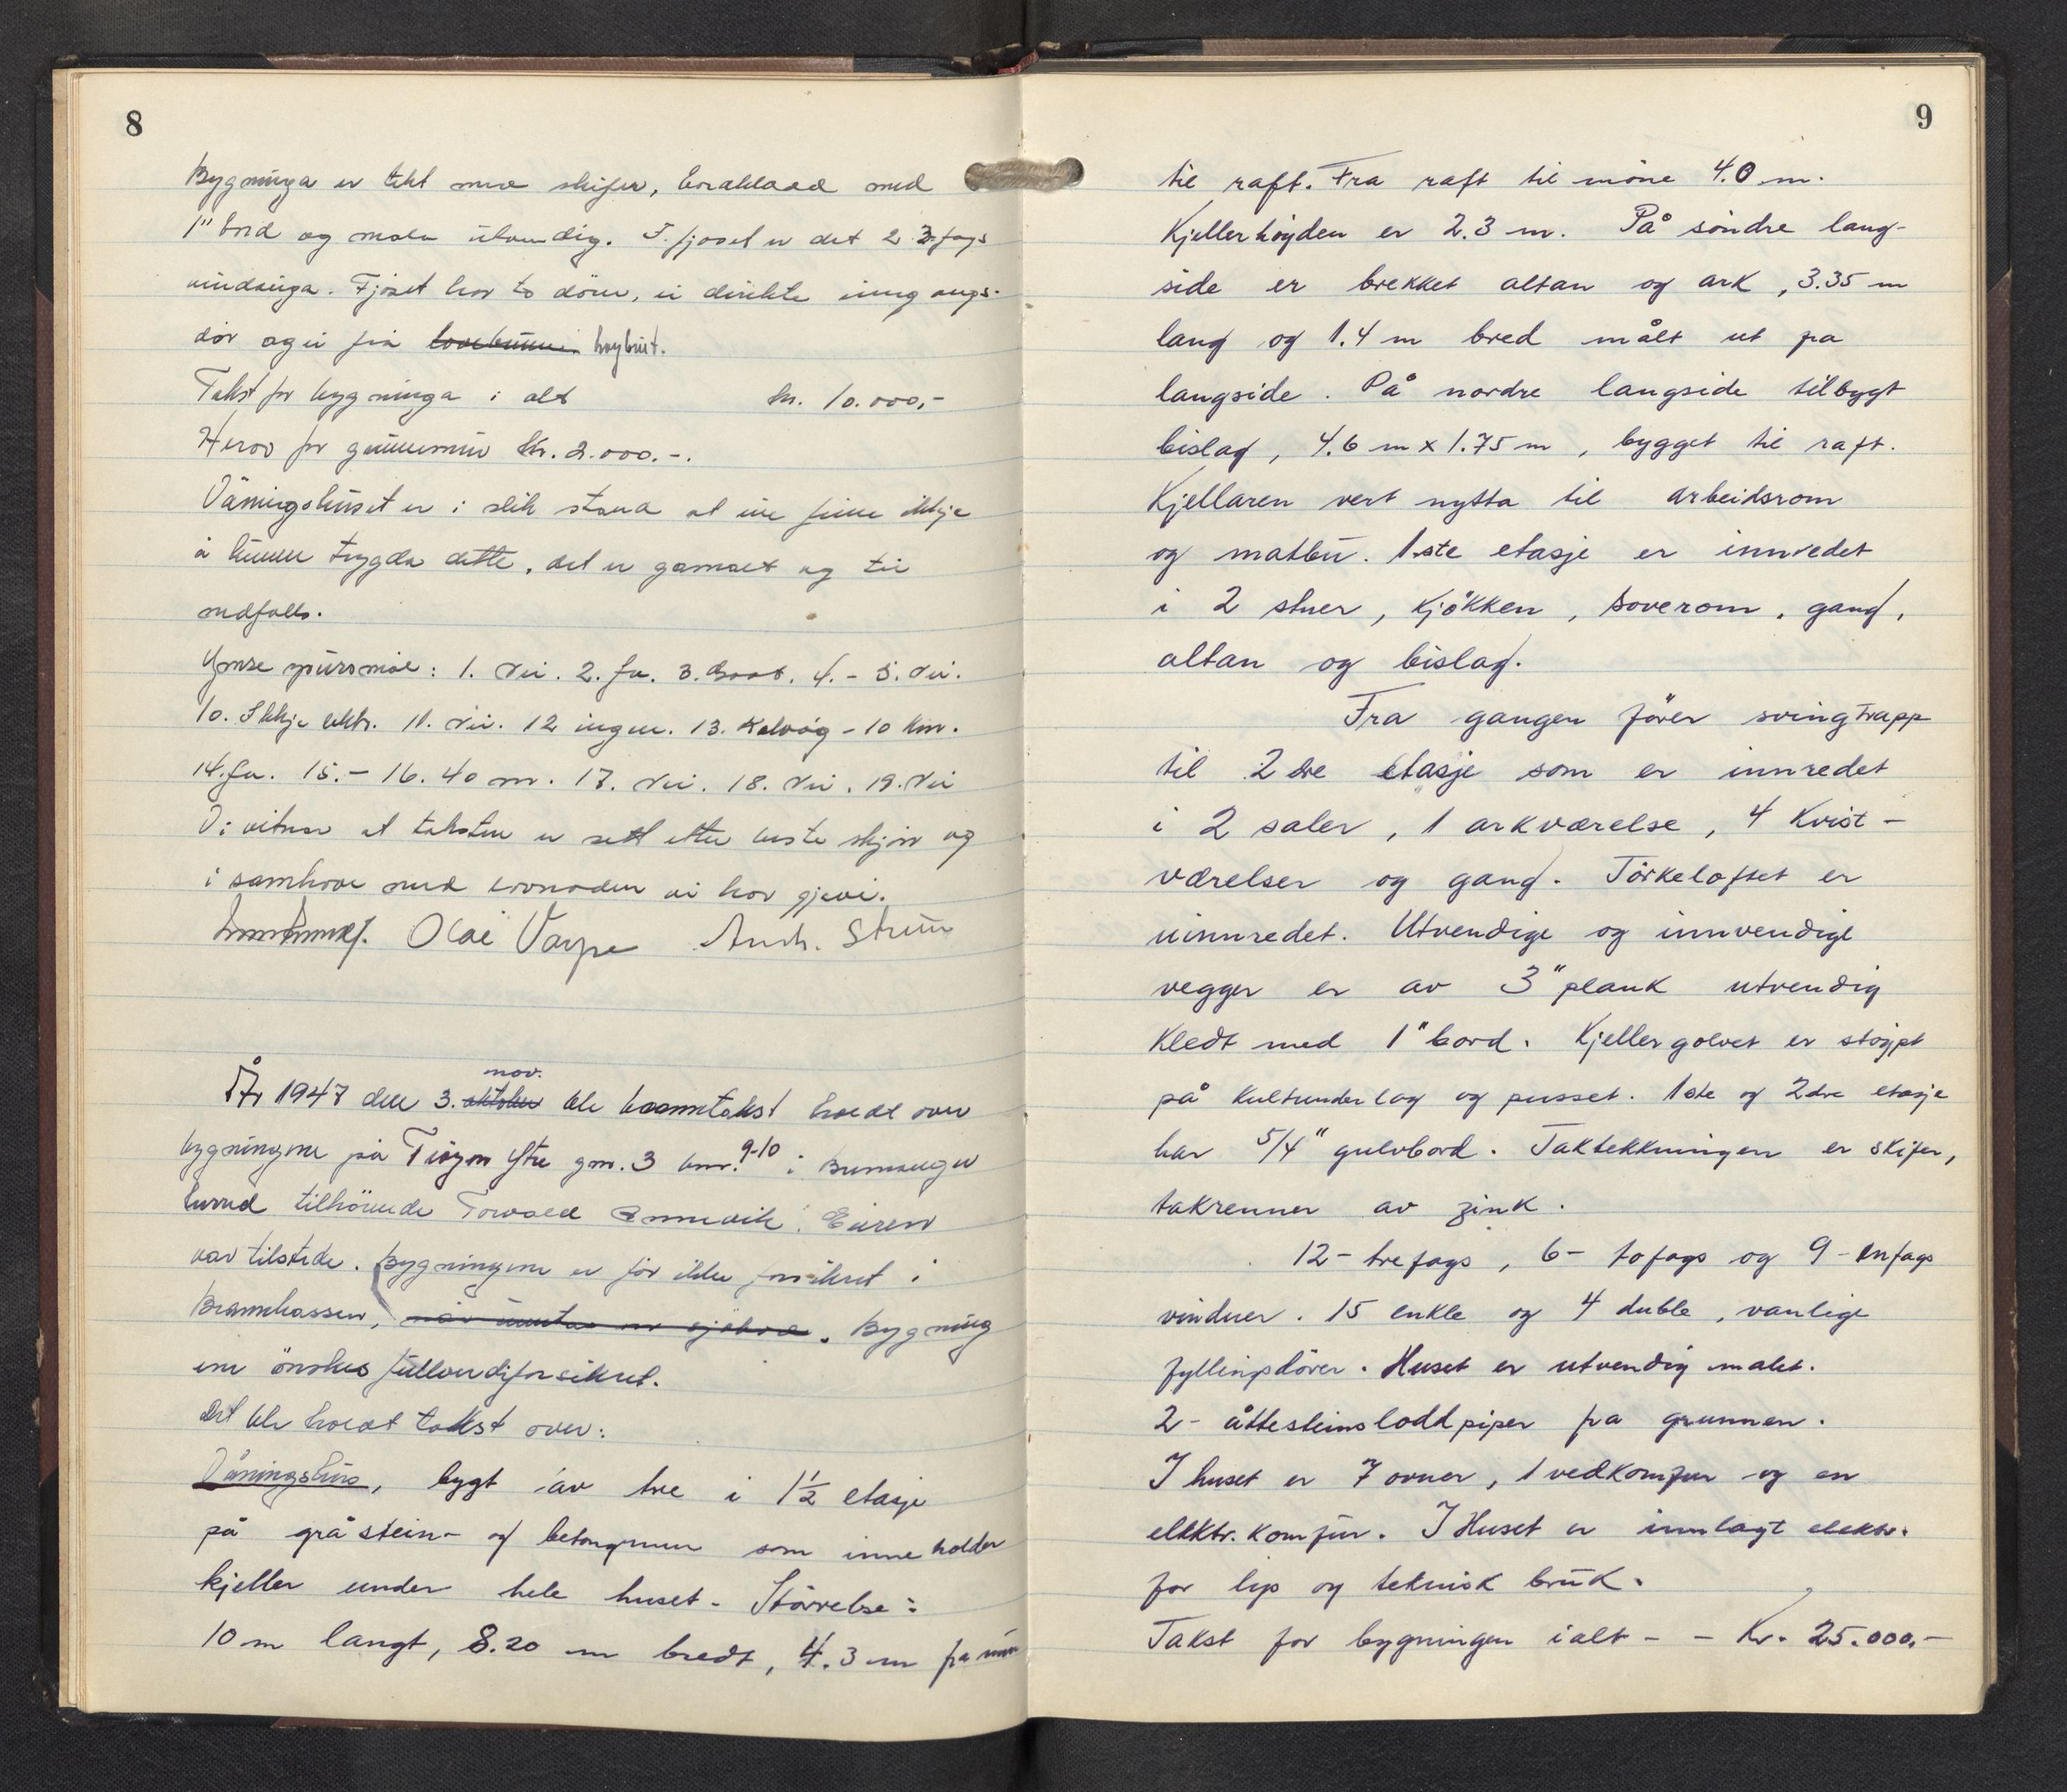 8
Bygninga er tekt med skifer, bordkladd med
1" bord og mala utvendig. I fjøset er det 2 3-fags
vindauga. Fjøset har to dører, ei direkte inngangs-
dør og ei frå høybrut.
Takst for bygninga i alt kr. 10.000,-
Herav for grunnmur kr. 2.000.-.
Våningshuset er i slik stand at me finn ikkje
å kunne trygda dette, det er gamalt og til
nedfalls.
Ymse spursmål: 1. Nei. 2. Ja. 3. 4.- 5. Nei.
10. Ikkje elektr. 11. Nei. 12 ingen. 13. Kalvåg - 10 km.
14. Ja. 15.- 16. 40 m. 17. Nei. 18. Nei. 19. Nei
Vi vitnar at taksten er sett etter beste skjøn og
i samhøve med lovnaden vi har gjeve.
Olai Varpe Andr. Strøm
År 1947 den 3. oktober nov. ble branntakst holdt over
bygningene på ytre gnr. 3 bnr. 9-10 i Bremanger
herred tilhørende Torvald Eieren
var tilstede. Bygningene er før ikke forsikret i
Brannkassen, . Bygning
ene ønskes fullverdiforsikret.
Det ble holdt takst over:
Våningshus, bygt av tre i 1½ etasje
på gråstein- og betongmur som inneholder
kjeller under hele huset. Störrelse:
10 m langt, 8.20 m bredt, 4.3 m fra mur
9
til raft. Fra raft til möne 4.0 m.
Kjellerhöyden er 2.3 m. På söndre lang-
side er brekket altan og ark, 3.35 m
lang og 1.4 m bred målt ut på
langside. På nordre langside tilbygt
bislag, 4.6 m x 1.75 m, bygget til raft.
Kjellaren vert nytta til arbeidsrom
og matbu. 1.ste etasje er innredet
i 2 stuer, kjökken, soverom, gang,
altan og bislag.
Fra gangen förer svingtrapp
til 2dre etasje som er innredet
i 2 saler, 1 arkværelse, 4 kvist-
værelser og gang. Törkeloftet er
uinnredet. Utvendige og innvendige
vegger er av 3" plank utvendig
kledt med 1" bord. Kjellergolvet er stöypt
på kultunderlag og pusset. 1ste og 2dre etasje
har 5/4" gulvbord. Taktekkningen er skifer,
takrenner av zink.
12- trefags, 6- tofags og 9- enfags
vinduer. 15 enkle og 4 duble, vanlige
fyllingsdörer. Huset er utvendig malet.
2- åttesteinsloddpiper fra grunnen.
I huset er 7 ovner, 1 vedkomfur og en
elektr. komfur. I Huset er innlagt elektr.
for lys og teknisk bruk.
Takst for bygningen ialt - - Kr. 25.000,-